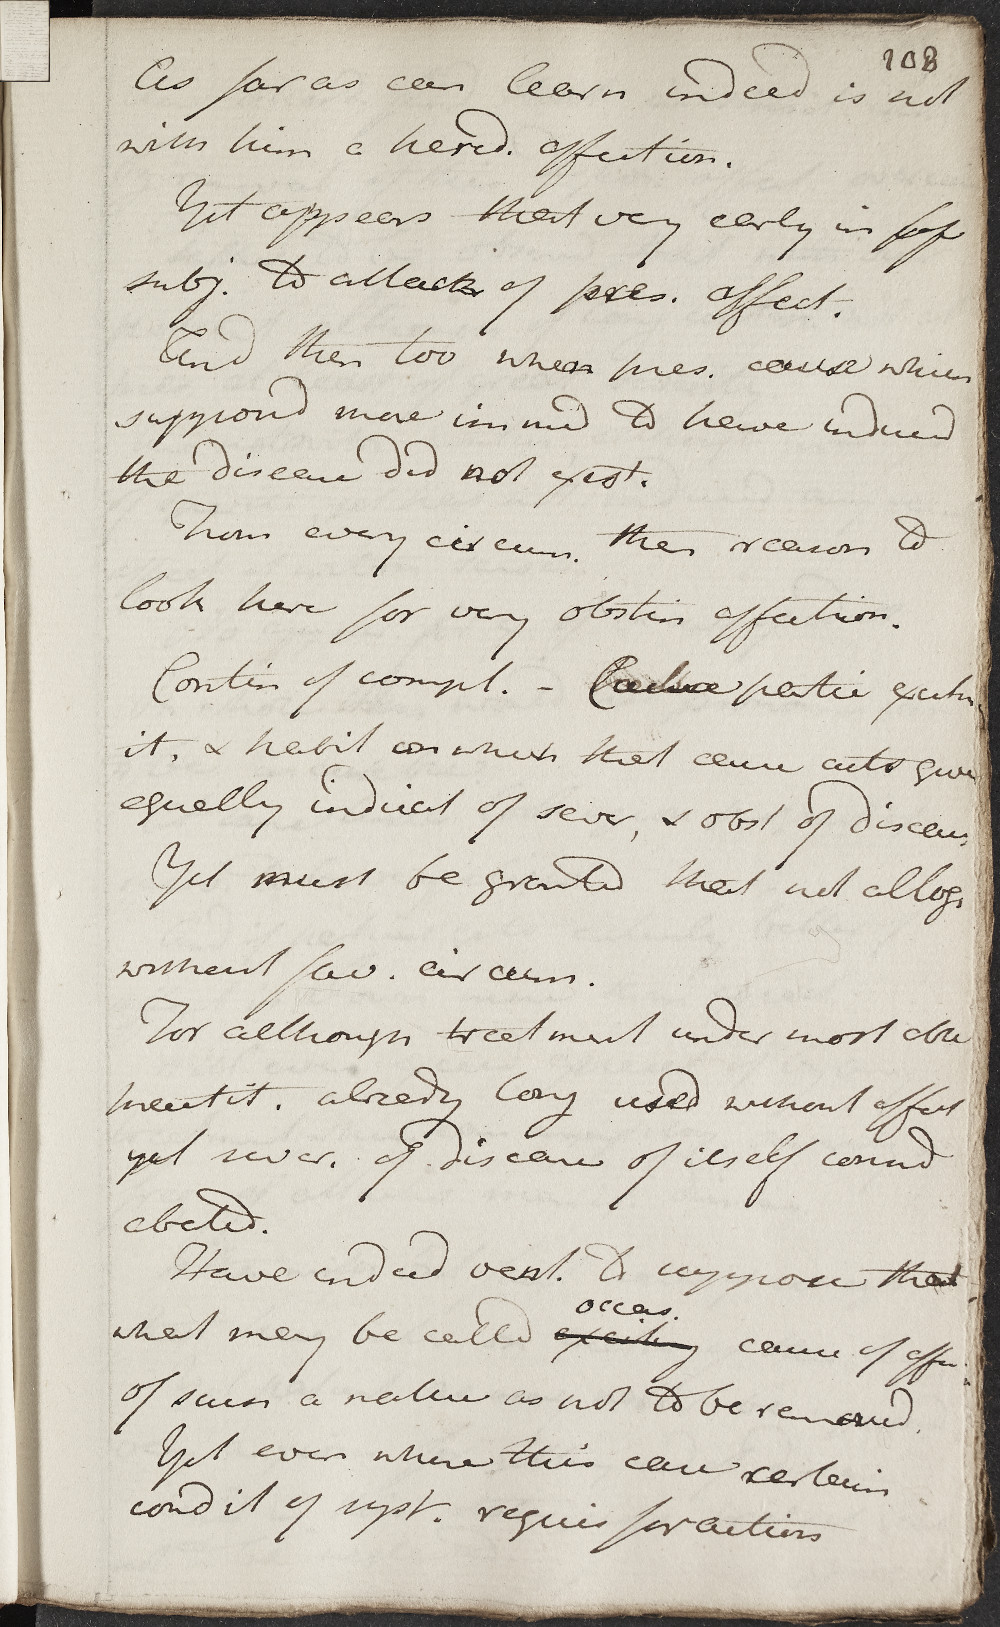 108
As far as can learn indeed is not
with him a hered. affection.
Yet appears that very early in life
subj. to attacks of pres. affect.
And then too when pres. cause which
suppond more immed to have induced
the disease did not exist.
From every circum. then reason to
look here for very obstin affection.
Contin of compl. - Cause partic excitin
it, & habit on which that cause acts give
equally indicat of sever, & obst of disease
Yet must be granted that not altog
without fav. circum.
For although treatment under most able
practit. already long used without effect
yet sever. of disease of itself consid
abated.
Have indeed reas. to suppose that
occas.
what may be called exciting cause of affec
of such a nature as not to be removed.
Yet even where this case certain
condit of syst. requis for action